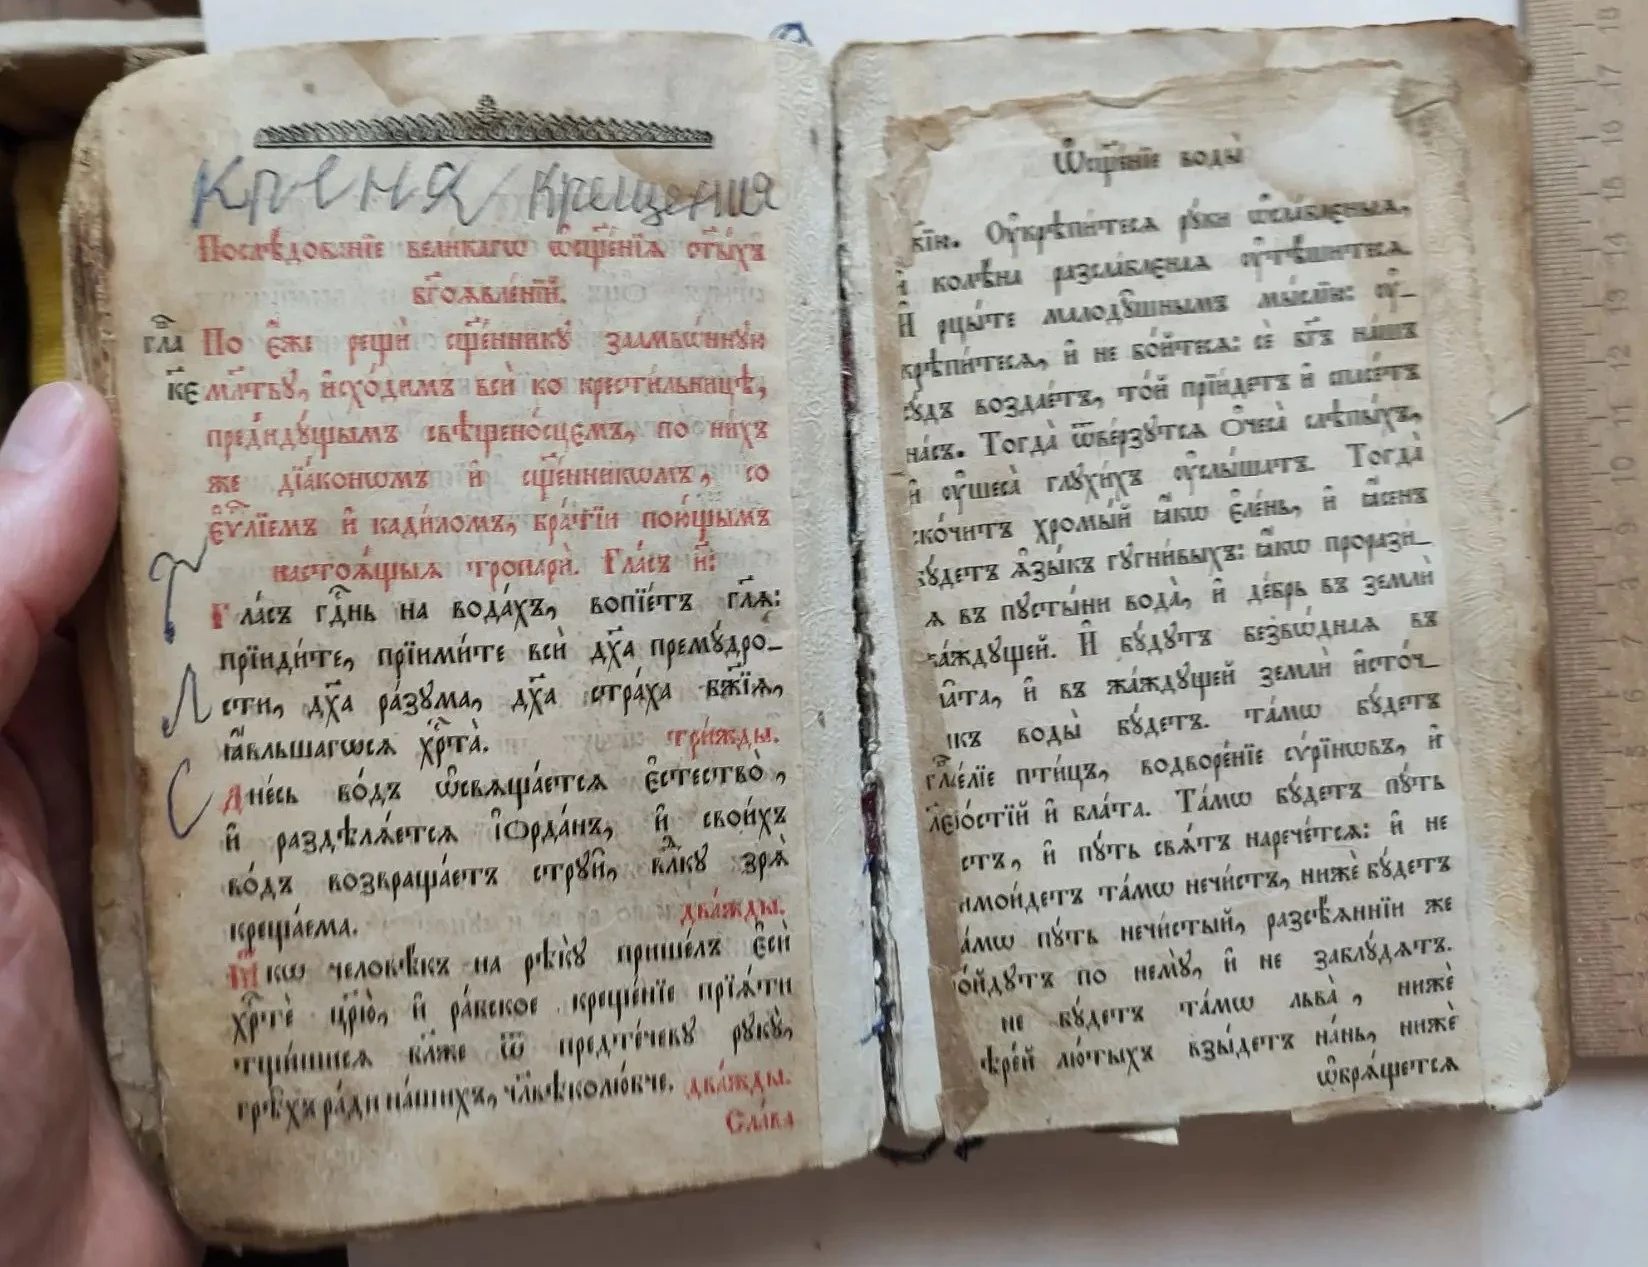 Крещения
Послѣ́дованїе вели́кагѡ ѡ҆сщ҃е́нїѧ ст҃ы́хъ
бг҃оѧвле́нїй.
гла҃
к҃є
По є҆́же рещѝ сщ҃е́ннику заамвѡ́нную
мл҃тву, и҆схо́димъ всѝ ко крести́льницѣ,
пред̾иду́щымъ свѣщено́сцємъ, по ни́хъ
же дїа́конѡмъ и҆ сщ҃е́нникѡмъ, со
є҆ѵⷢ҇лїемъ и҆ кади́ломъ, бра́тїи пою́щымъ
настоѧ́щыѧ тропарѝ. Гла́съ и҃:
Гла́съ гдⷭ҇нь на вода́хъ, вопїе́тъ гл҃ѧ:
прїиди́те, прїими́те всѝ дх҃а премꙋ́дро-
сти, дх҃а ра́зума, дх҃а стра́ха бж҃їѧ,
ꙗ҆́вльшагѡсѧ хрⷭ҇та̀. три́жды.
Дне́сь во́дъ ѡ҆свѧща́етсѧ є҆стество̀,
и҆ раздѣлѧ́етсѧ і҆ѻрда́нъ, и҆ свои́хъ
во́дъ возвраща́етъ струи̑, влⷣку зрѧ̀
креща́ема. два́жды.
Ꙗ҆́кѡ человѣ́къ на рѣкꙋ̀ прише́лъ є҆сѝ
хрⷭ҇тѐ цр҃ю̀, и҆ ра́бское креще́нїе прїѧ́ти
тщи́шисѧ бл҃же ѿ предте́чеву рукꙋ̀,
грѣ̑хъ ра́ди на́шихъ, чл҃вѣколю́бче. два́жды.
Сла́ва
Ѡ҆сщ҃е́нїе воды̀
кїи. Оу҆крѣпи́тесѧ руки ѡ҆сла́блєныѧ,
и҆ колѣ́на разсла́блєнаѧ оу҆тѣ́шитесѧ.
И҆ рцы́те малоду́шнымъ мы́слїю: оу҆-
крѣпи́тесѧ, и҆ не бо́йтесѧ: сѐ бг҃ъ на́шъ
су́дъ воздае́тъ, то́й прїи́детъ и҆ спасе́тъ
на́съ. Тогда̀ ѿве́рзутсѧ ѻ҆чеса̀ слѣпы́хъ,
и҆ оу҆шеса̀ глухи́хъ оу҆слы́шатъ. Тогда̀
ско́читъ хромы́й ꙗ҆́кѡ є҆ле́нь, и҆ ꙗ҆́сенъ
бу́детъ ѧ҆зы́къ гугни́выхъ: ꙗ҆́кѡ прорази́-
ѧ въ пусты́ни вода̀, и҆ де́брь въ землѝ
жа́ждущей. И҆ бу́дутъ безвѡ́днаѧ въ
ꙗ҆та, и҆ въ жа́ждущей землѝ и҆сто́ч-
икъ воды̀ бу́детъ. та́мѡ бу́детъ
весе́лїе пти́цъ, водворе́нїе сѷрі́нѡвъ, и҆
тро́стїй и҆ бла́та. Та́мѡ бу́детъ пу́ть
стъ, и҆ пу́ть свѧ́тъ нарече́тсѧ: и҆ не
имои́детъ та́мѡ нечи́стъ, нижѐ бу́детъ
а́мѡ пу́ть нечи́стый, разсѣ́ѧннїи же
о́йдутъ по нему̀, и҆ не заблу́дѧтъ.
не бу́детъ та́мѡ льва̀, нижѐ
ѕвѣре́й лю́тыхъ взы́детъ на́нь, нижѐ
ѡ҆брѧ́щетсѧ